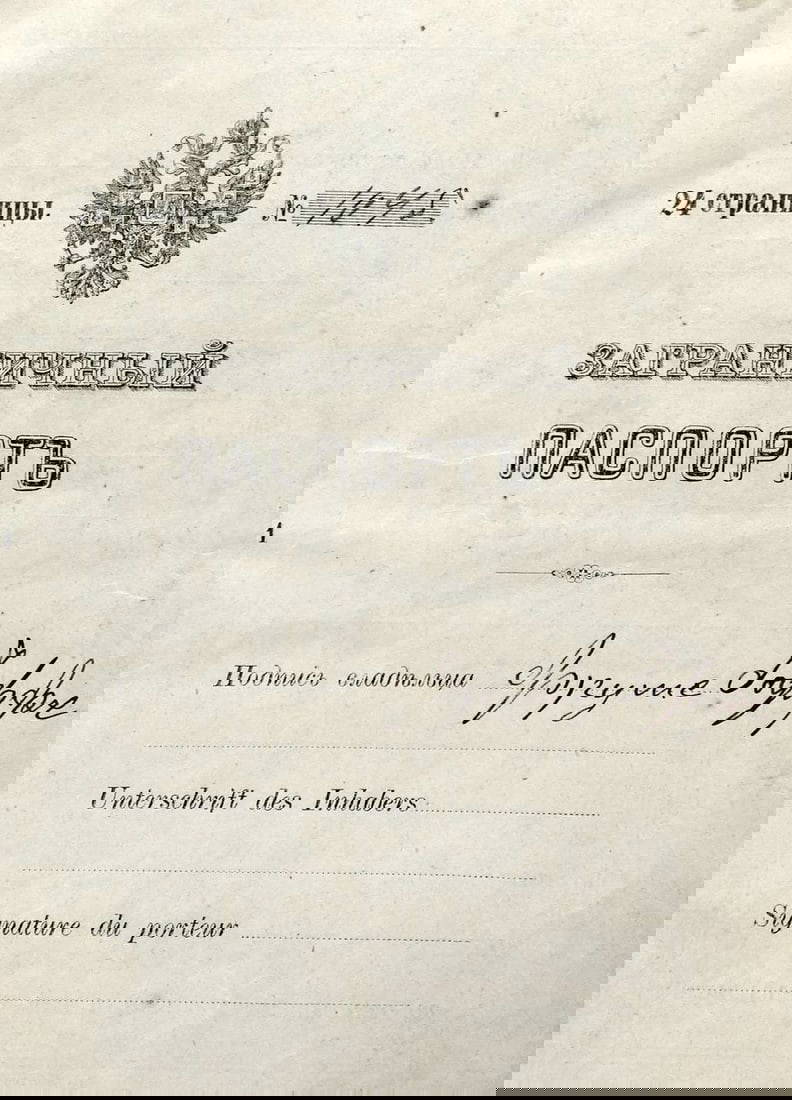 24 страницы.
№
ЗАГРАНИЧНЫЙ
ПАСПОРТЪ
1
Подпись владѣльца
Unterschrift des Inhabers
Signature du porteur